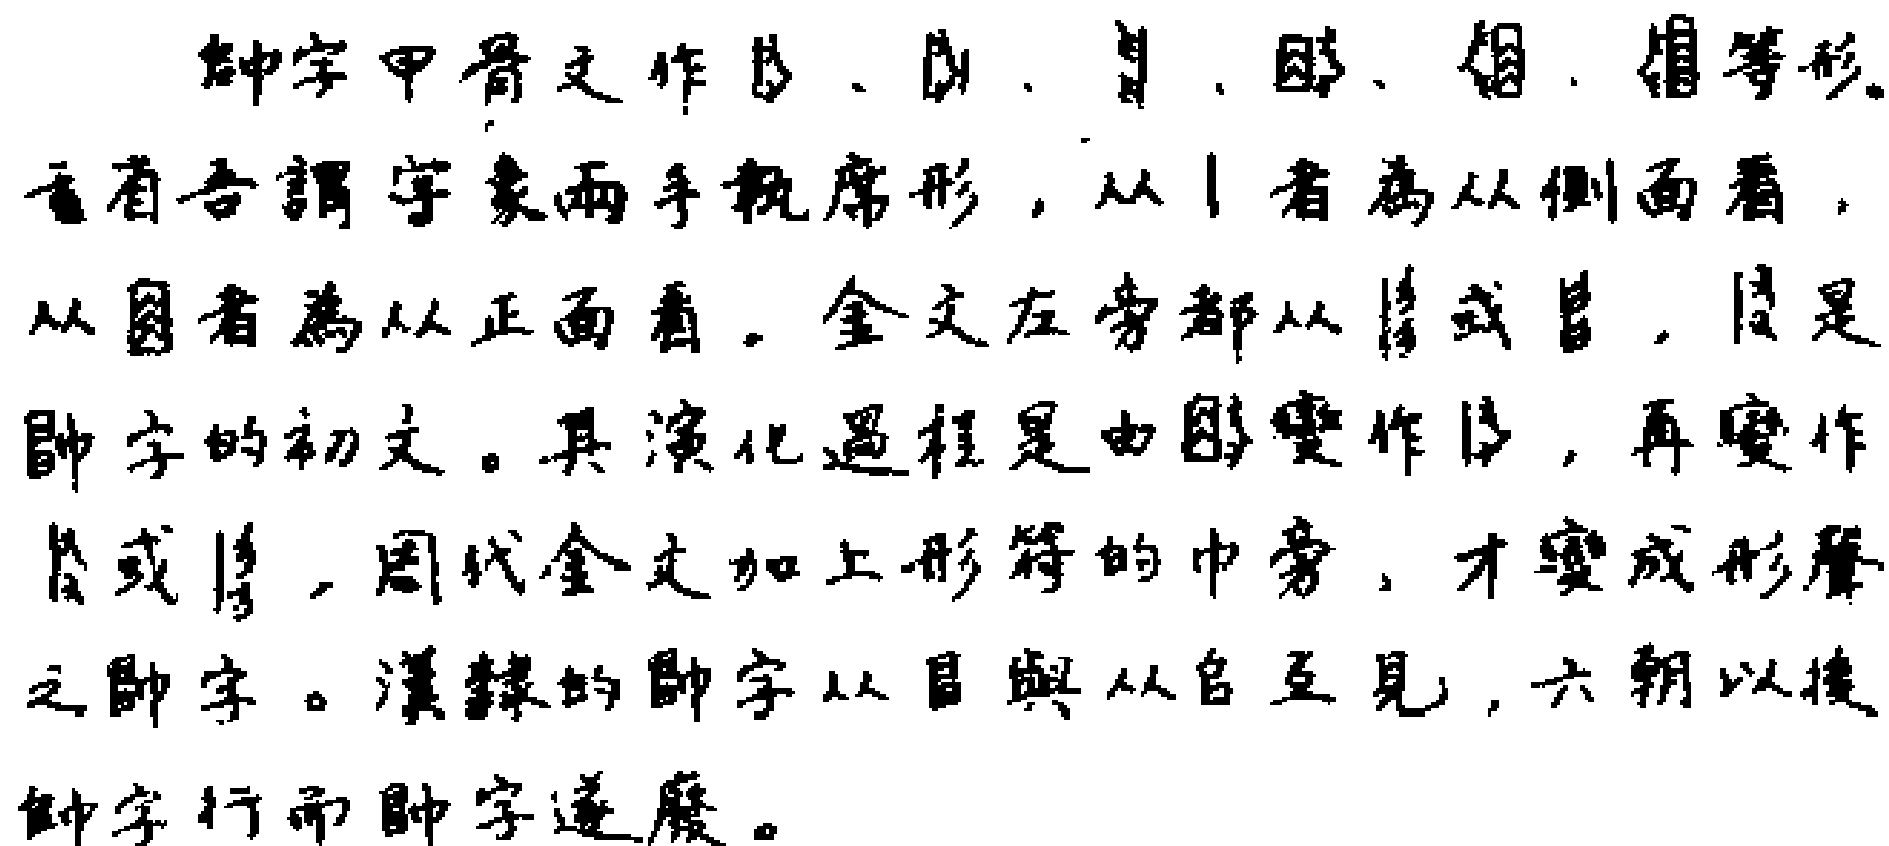 帥字甲骨文作、、、、、等形。
者謂字象兩手執席形，从丨者為从側面看，
从者為从正面看。金文左旁都从或，是
帥字的初文。其演化過程是由變作，再變作
或，周代金文加上形符的巾旁，才變成形聲
之帥字。漢隸的帥字从𠂤與从㠯互見，六朝以後
帥字行而帥字遂廢。